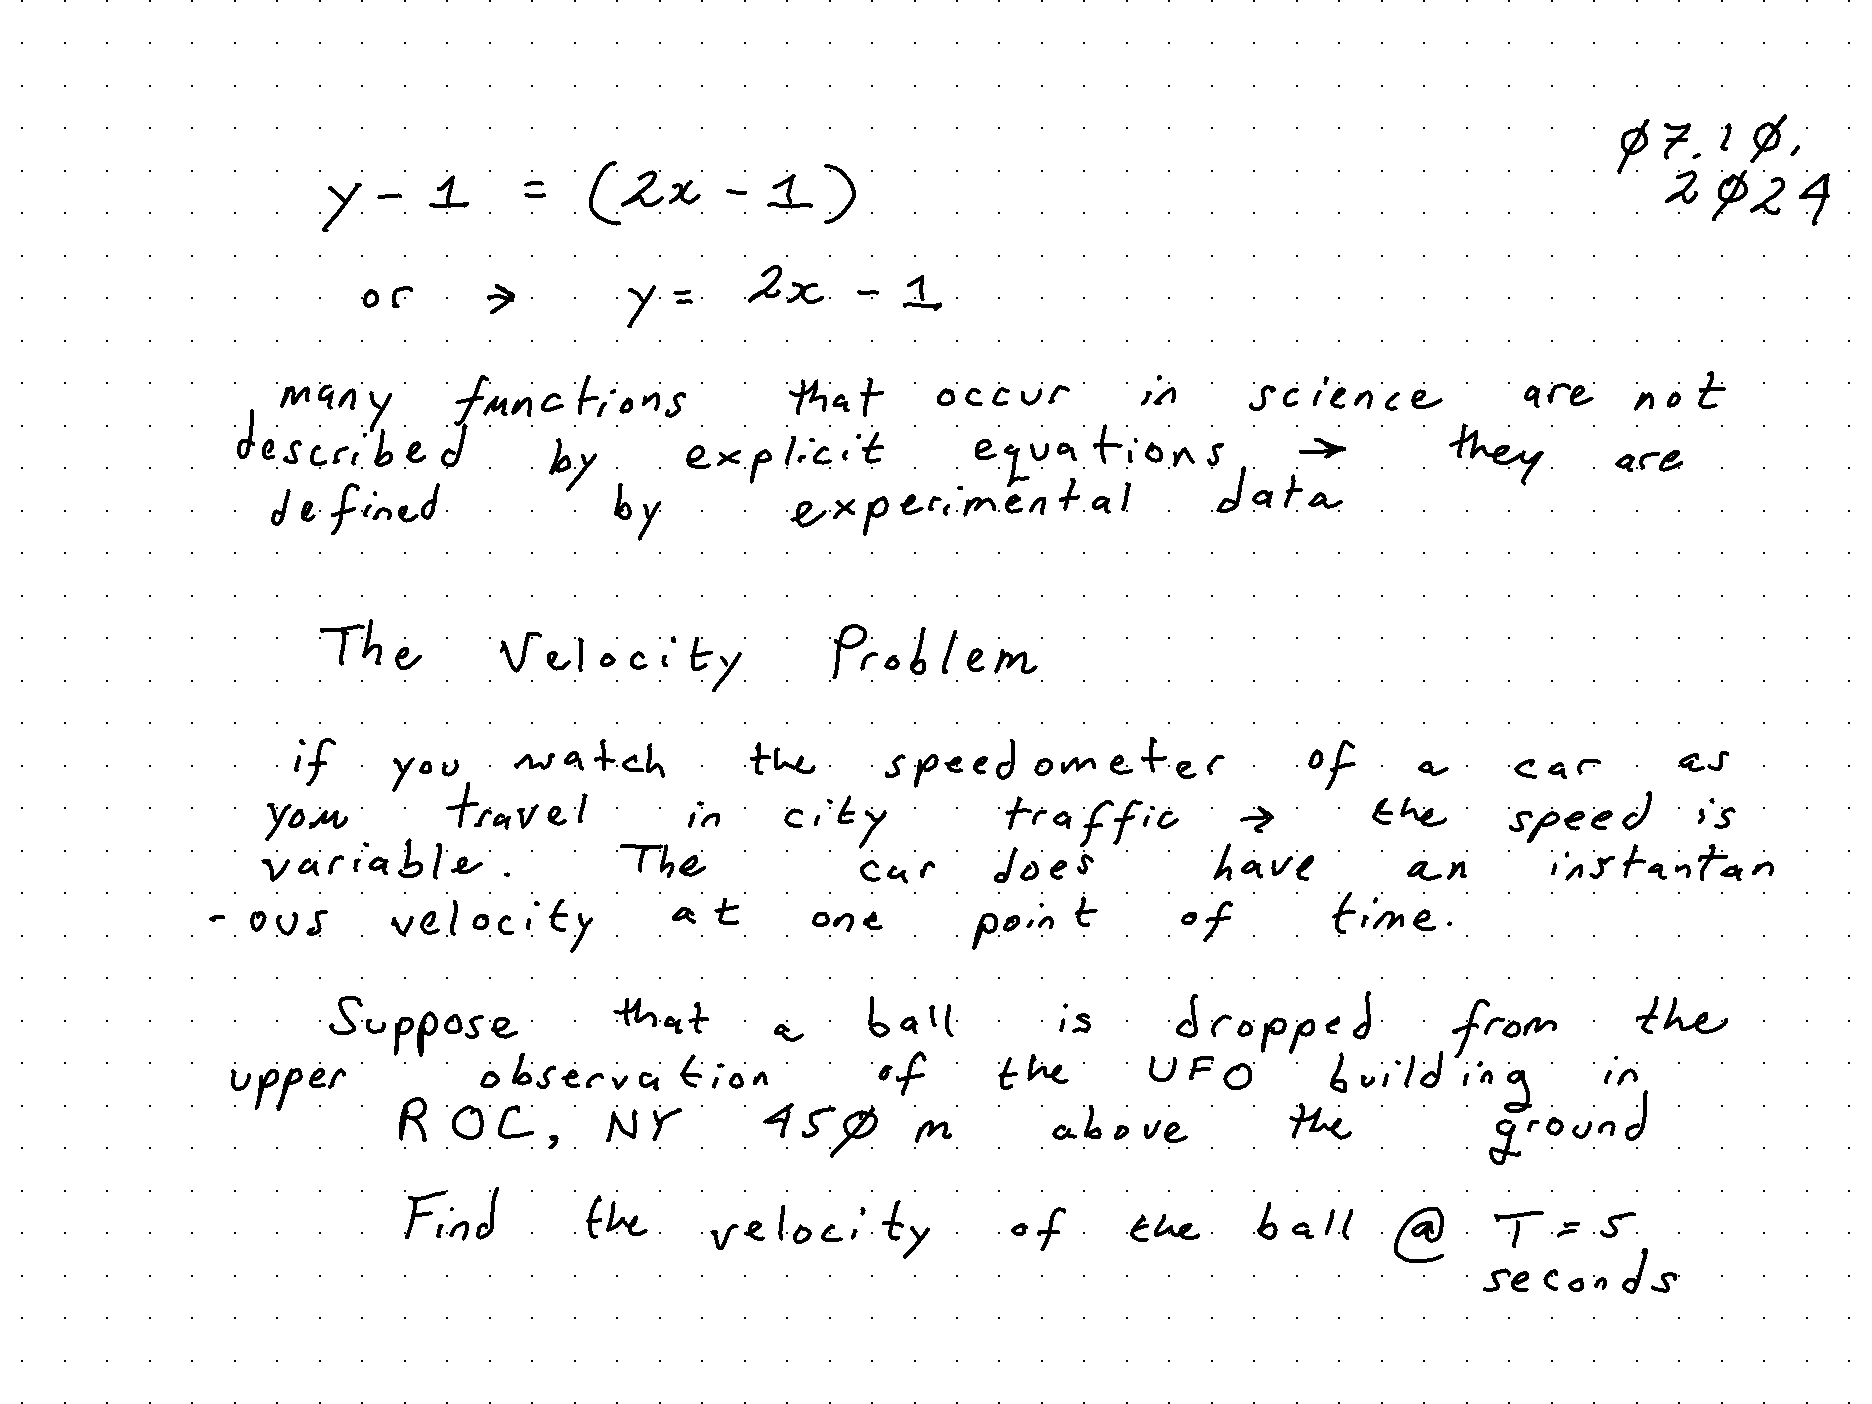 Ø7.1Ø.
2Ø24
y - 1 = (2x - 1)
or → y = 2x - 1
many functions that occur in science are not
described by explicit equations → they are
defined by experimental data
The Velocity Problem
if you watch the speedometer of a car as
you travel in city traffic → the speed is
variable. The car does have an instantan
-ous velocity at one point of time.
Suppose that a ball is dropped from the
upper observation of the UFO building in
ROC, NY 45Ø m above the ground
Find the velocity of the ball @ T = 5
seconds